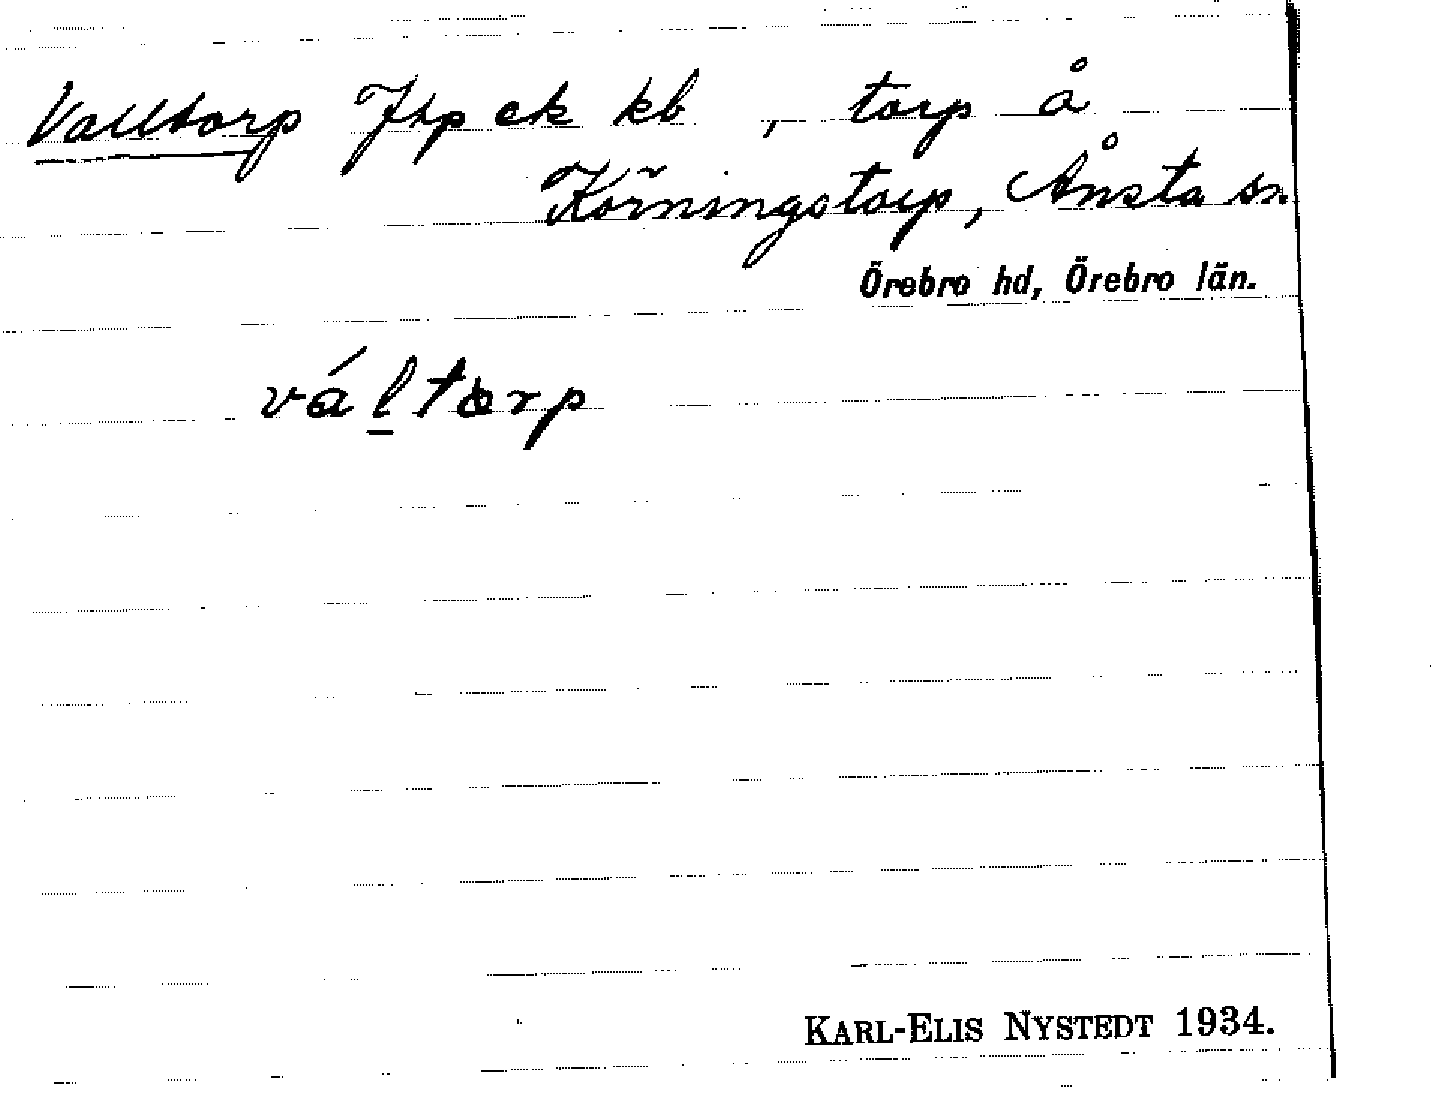 Valltorp Jtp ek kb, torp å
Körningstorp, Ånsta sn
Örebro hd, Örebro län.
váltorp
KARL-ELIS NYSTEDT 1934.